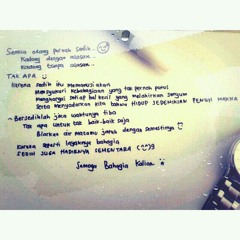 Semua orang pernah sedih..
Kadang dengan alasan..
Kadang tanpa alasan..
TAK APA
Karena sedih itu memanusiakan
Mensyukuri kebahagiaan yang tak pernah purus
Menghargai setiap hal kecil yang melahirkan senyum
Serta menyadarkan kita bahwa HIDUP SEDEMIKIAN PENUH MAKNA
~ Bersedihlah jika waktunya tiba
Tak apa untuk tak baik-baik saja
Biarkan air matamu jatuh dengan semestinya
Karena seperti layaknya bahagia
SEDIH JUGA HADIRNYA SEMENTARA
Semoga Bahagia Kalian